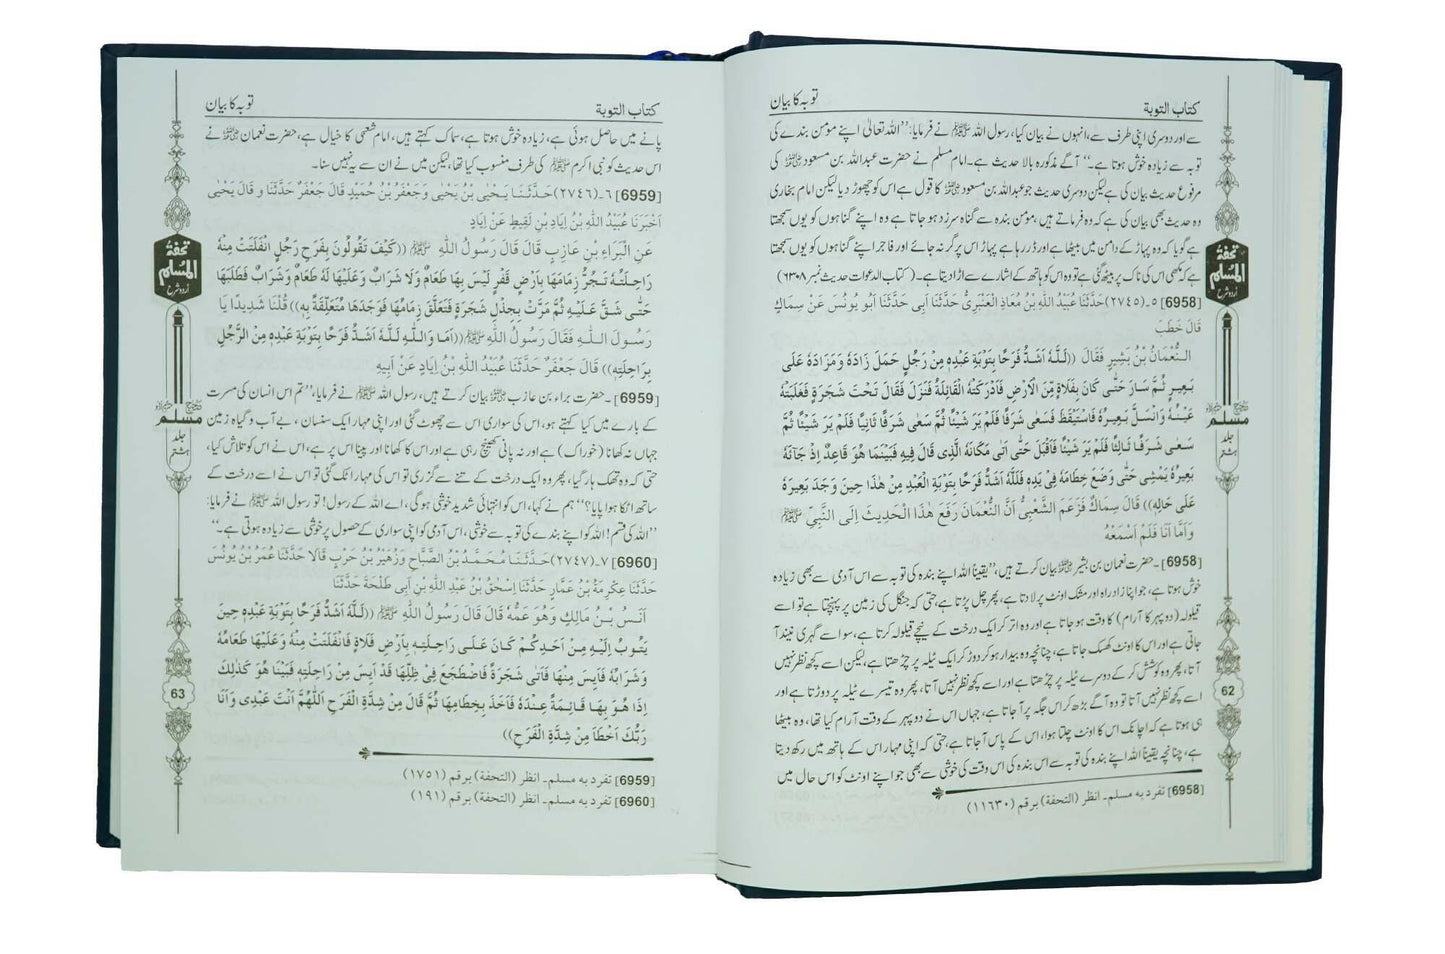 كتاب التوبة
توبہ کا بیان
سے اور دوسری اپنی طرف سے، انہوں نے بیان کیا، رسول اللہ ﷺ نے فرمایا: ’’اللہ تعالیٰ اپنے مومن بندے کی
توبہ سے زیادہ خوش ہوتا ہے۔‘‘ آگے مذکورہ بالا حدیث ہے۔ امام مسلم نے حضرت عبداللہ بن مسعود ؓ کی
مرفوع حدیث بیان کی ہے لیکن دوسری حدیث جو عبداللہ بن مسعود ؓ کا قول ہے اس کو چھوڑ دیا لیکن امام بخاری
وہ حدیث بھی بیان کی ہے کہ وہ فرماتے ہیں، مومن بندہ سے گناہ سرزد ہو جاتا ہے وہ اپنے گناہوں کو یوں سمجھتا
ہے گویا کہ وہ پہاڑ کے دامن میں بیٹھا ہے اور ڈر رہا ہے پہاڑ اس پر گر نہ جائے اور فاجر اپنے گناہوں کو یوں سمجھتا
ہے کہ مکھی اس کی ناک پر بیٹھ گئی ہے تو وہ اس کو ہاتھ کے اشارے سے اڑا دیتا ہے۔ (کتاب الدعوات حدیث نمبر ۶۳۰۸)
[6958] ٥۔(٢٧٤٥) حَدَّثَنَا عُبَيْدُ اللّٰهِ بْنُ مُعَاذٍ الْعَنْبَرِيُّ حَدَّثَنَا أَبِي حَدَّثَنَا أَبُو يُونُسَ عَنْ سِمَاكٍ
قَالَ خَطَبَ
النُّعْمَانُ بْنُ بَشِيرٍ فَقَالَ ((لَلّٰهُ أَشَدُّ فَرَحًا بِتَوْبَةِ عَبْدِهِ مِنْ رَجُلٍ حَمَلَ زَادَهُ وَمَزَادَهُ عَلَى
بَعِيرٍ ثُمَّ سَارَ حَتّٰى كَانَ بِفَلَاةٍ مِّنَ الْأَرْضِ فَأَدْرَكَتْهُ الْقَائِلَةُ فَنَزَلَ فَقَالَ تَحْتَ شَجَرَةٍ فَغَلَبَتْهُ
عَيْنُهُ وَانْسَلَّ بَعِيرُهُ فَاسْتَيْقَظَ فَسَعٰى شَرَفًا فَلَمْ يَرَ شَيْئًا ثُمَّ سَعٰى شَرَفًا ثَانِيًا فَلَمْ يَرَ شَيْئًا ثُمَّ
سَعٰى شَرَفًا ثَالِثًا فَلَمْ يَرَ شَيْئًا فَأَقْبَلَ حَتّٰى أَتٰى مَكَانَهُ الَّذِي قَالَ فِيهِ فَبَيْنَمَا هُوَ قَاعِدٌ إِذْ جَاءَهُ
بَعِيرُهُ يَمْشِي حَتّٰى وَضَعَ خِطَامَهُ فِي يَدِهِ فَلَلّٰهُ أَشَدُّ فَرَحًا بِتَوْبَةِ الْعَبْدِ مِنْ هٰذَا حِينَ وَجَدَ بَعِيرَهُ
عَلٰى حَالِهِ)) قَالَ سِمَاكٌ فَزَعَمَ الشَّعْبِيُّ أَنَّ النُّعْمَانَ رَفَعَ هٰذَا الْحَدِيثَ إِلَى النَّبِيِّ ﷺ
وَأَمَّا أَنَا فَلَمْ أَسْمَعْهُ
[6958]۔ حضرت نعمان بن بشیر ؓ بیان کرتے ہیں، ’’یقیناً اللہ اپنے بندہ کی توبہ سے اس آدمی سے بھی زیادہ
خوش ہوتا ہے، جو اپنا زاد راہ اور مشک اونٹ پر لادتا ہے، پھر چل پڑتا ہے، حتی کہ جنگل کی زمین پر پہنچتا ہے تو اسے
قیلولہ (دوپہر کا آرام) کا وقت ہو جاتا ہے اور وہ اتر کر ایک درخت کے نیچے قیلولہ کرتا ہے، سو اسے گہری نیند آ
جاتی ہے اور اس کا اونٹ کھسک جاتا ہے، چنانچہ وہ بیدار ہو کر دوڑ کر ایک ٹیلہ پر چڑھتا ہے، لیکن اسے کچھ نظر نہیں
آتا، پھر وہ کوشش کر کے دوسرے ٹیلہ پر چڑھتا ہے اور اسے کچھ نظر نہیں آتا، پھر وہ تیسرے ٹیلہ پر دوڑتا ہے اور
اسے کچھ نظر نہیں آتا تو وہ آگے بڑھ کر اس جگہ پر آ جاتا ہے، جہاں اس نے دوپہر کے وقت آرام کیا تھا، وہ بیٹھا
ہی ہوتا ہے کہ اچانک اس کا اونٹ چلتا ہوا، اس کے پاس آ جاتا ہے، حتی کہ اپنی مہار اس کے ہاتھ میں رکھ دیتا
ہے، چنانچہ یقیناً اللہ اپنے بندہ کی توبہ سے اس بندہ کی اس وقت کی خوشی سے بھی جو اپنے اونٹ کو اس حال میں
[6958] تفرد به مسلم۔ انظر (التحفة) برقم (١١٦٣٠)
تحفة
المسلم
اردو شرح
صحیح
مسلم
جلد
ہشتم
62
كتاب التوبة
توبہ کا بیان
پانے میں حاصل ہوئی ہے، زیادہ خوش ہوتا ہے، سماک کہتے ہیں، امام شعبی کا خیال ہے، حضرت نعمان ؓ نے
اس حدیث کو نبی اکرم ﷺ کی طرف منسوب کیا تھا، لیکن میں نے ان سے یہ نہیں سنا۔
[6959] ٦۔(٢٧٤٦) حَدَّثَنَا يَحْيَى بْنُ يَحْيٰى وَجَعْفَرُ بْنُ حُمَيْدٍ قَالَ جَعْفَرٌ حَدَّثَنَا و قَالَ يَحْيٰى
أَخْبَرَنَا عُبَيْدُ اللّٰهِ بْنُ إِيَادِ بْنِ لَقِيطٍ عَنْ إِيَادٍ
عَنِ الْبَرَاءِ بْنِ عَازِبٍ قَالَ قَالَ رَسُولُ اللّٰهِ ﷺ ((كَيْفَ تَقُولُونَ بِفَرَحِ رَجُلٍ انْفَلَتَتْ مِنْهُ
رَاحِلَتُهُ تَجُرُّ زِمَامَهَا بِأَرْضٍ قَفْرٍ لَيْسَ بِهَا طَعَامٌ وَلَا شَرَابٌ وَعَلَيْهَا لَهُ طَعَامٌ وَشَرَابٌ فَطَلَبَهَا
حَتّٰى شَقَّ عَلَيْهِ ثُمَّ مَرَّتْ بِجِذْلِ شَجَرَةٍ فَتَعَلَّقَ زِمَامُهَا فَوَجَدَهَا مُتَعَلِّقَةً بِهِ)) قُلْنَا شَدِيدًا يَا
رَسُولَ اللّٰهِ فَقَالَ رَسُولُ اللّٰهِ ﷺ ((أَمَا وَاللّٰهِ لَلّٰهُ أَشَدُّ فَرَحًا بِتَوْبَةِ عَبْدِهِ مِنَ الرَّجُلِ
بِرَاحِلَتِهِ)) قَالَ جَعْفَرٌ حَدَّثَنَا عُبَيْدُ اللّٰهِ بْنُ إِيَادٍ عَنْ أَبِيهِ
[6959]۔ حضرت براء بن عازب ؓ بیان کرتے ہیں، رسول اللہ ﷺ نے فرمایا، ’’تم اس انسان کی مسرت
کے بارے میں کیا کہتے ہو، اس کی سواری اس سے چھوٹ گئی اور اپنی مہار ایک سنسان، بے آب و گیاہ زمین
جہاں نہ کھانا (خوراک) ہے اور نہ پانی کھینچ رہی ہے اور اس کا کھانا اور پینا اس پر ہے، اس نے اس کو تلاش کیا،
حتی کہ وہ تھک ہار گیا، پھر وہ ایک درخت کے تنے سے گزری تو اس کی مہار اٹک گئی تو اس نے اسے درخت کے
ساتھ اٹکا ہوا پایا؟‘‘ ہم نے کہا، اس کو انتہائی شدید خوشی ہوگی، اے اللہ کے رسول! تو رسول اللہ ﷺ نے فرمایا:
’’اللہ کی قسم! اللہ کو اپنے بندے کی توبہ سے خوشی، اس آدمی کو اپنی سواری کے حصول پر خوشی سے زیادہ ہوتی ہے۔‘‘
[6960] ٧۔(٢٧٤٧) حَدَّثَنَا مُحَمَّدُ بْنُ الصَّبَّاحِ وَزُهَيْرُ بْنُ حَرْبٍ قَالَا حَدَّثَنَا عُمَرُ بْنُ يُونُسَ
حَدَّثَنَا عِكْرِمَةُ بْنُ عَمَّارٍ حَدَّثَنَا إِسْحٰقُ بْنُ عَبْدِ اللّٰهِ بْنِ أَبِي طَلْحَةَ حَدَّثَنَا
أَنَسُ بْنُ مَالِكٍ وَهُوَ عَمُّهُ قَالَ قَالَ رَسُولُ اللّٰهِ ﷺ ((لَلّٰهُ أَشَدُّ فَرَحًا بِتَوْبَةِ عَبْدِهِ حِينَ
يَتُوبُ إِلَيْهِ مِنْ أَحَدِكُمْ كَانَ عَلٰى رَاحِلَتِهِ بِأَرْضِ فَلَاةٍ فَانْفَلَتَتْ مِنْهُ وَعَلَيْهَا طَعَامُهُ
وَشَرَابُهُ فَأَيِسَ مِنْهَا فَأَتٰى شَجَرَةً فَاضْطَجَعَ فِي ظِلِّهَا قَدْ أَيِسَ مِنْ رَاحِلَتِهِ فَبَيْنَا هُوَ كَذٰلِكَ
إِذَا هُوَ بِهَا قَائِمَةً عِنْدَهُ فَأَخَذَ بِخِطَامِهَا ثُمَّ قَالَ مِنْ شِدَّةِ الْفَرَحِ اللّٰهُمَّ أَنْتَ عَبْدِي وَأَنَا
رَبُّكَ أَخْطَأَ مِنْ شِدَّةِ الْفَرَحِ))
[6959] تفرد به مسلم۔ انظر (التحفة) برقم (١٧٥١)
[6960] تفرد به مسلم۔ انظر (التحفة) برقم (١٩١)
تحفة
المسلم
اردو شرح
صحیح
مسلم
جلد
ہشتم
63